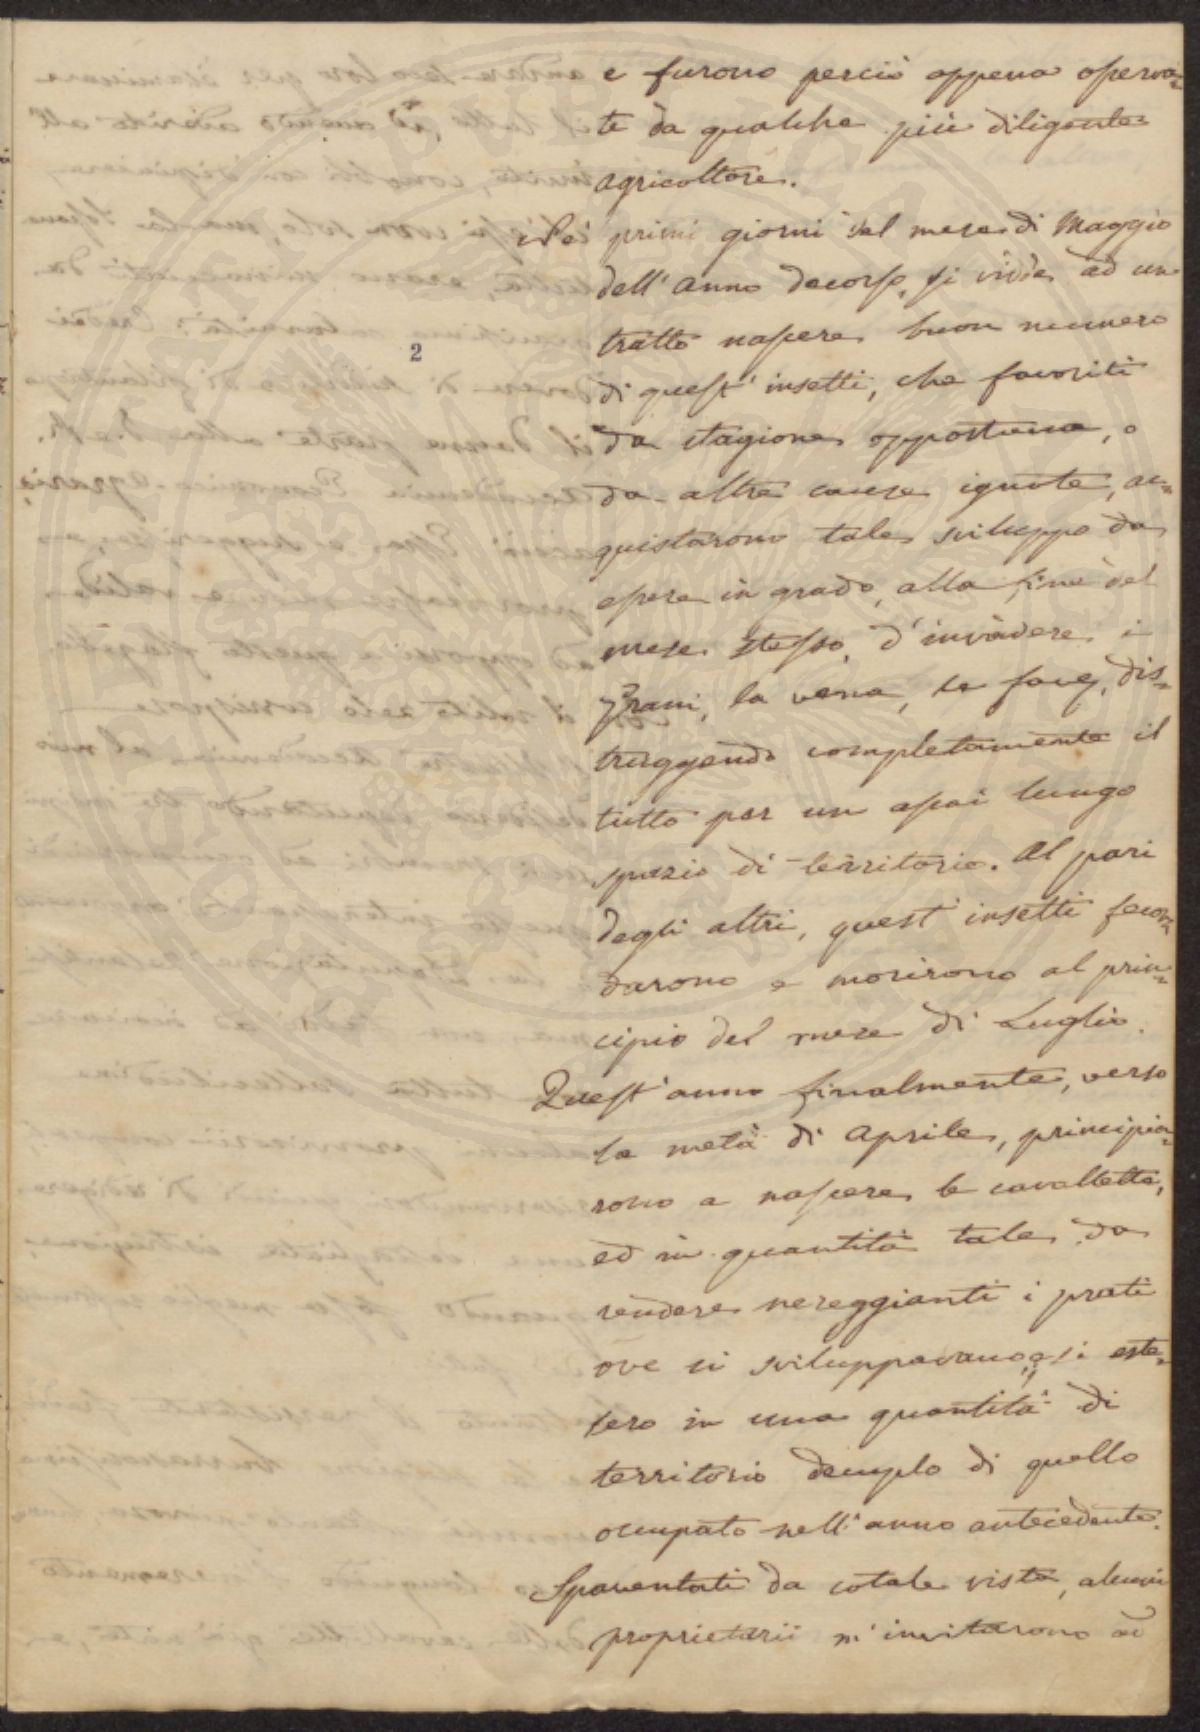 e furono perciò appena osserva=
te da qualche più diligente
agricoltore.
Ne' primi giorni del mese di Maggio
dell'anno decorso, si vidde ad un
tratto nascere buon numero
2
di quest'insetti, che favoriti
da stagione opportuna, o
da altre cause ignote, ac=
quistarono tale sviluppo da
essere in grado, alla fine del
mese stesso, d'invadere i
grani, la vena, le fave, dis=
truggendo completamente il
tutto per un assai lungo
spazio di territorio. Al pari
degli altri, quest'insetti fecon=
darono e morirono al prin=
cipio del mese di Luglio.
Quest'anno finalmente, verso
la metà di Aprile, principia=
rono a nascere le cavallette,
ed in quantità tale da
rendere nereggianti i prati
ove si sviluppavano, e si este=
sero in una quantità di
territorio decuplo di quello
occupato nell'anno antecedente.
Spaventati da cotale vista, alcuni
proprietarii m'invitarono ad